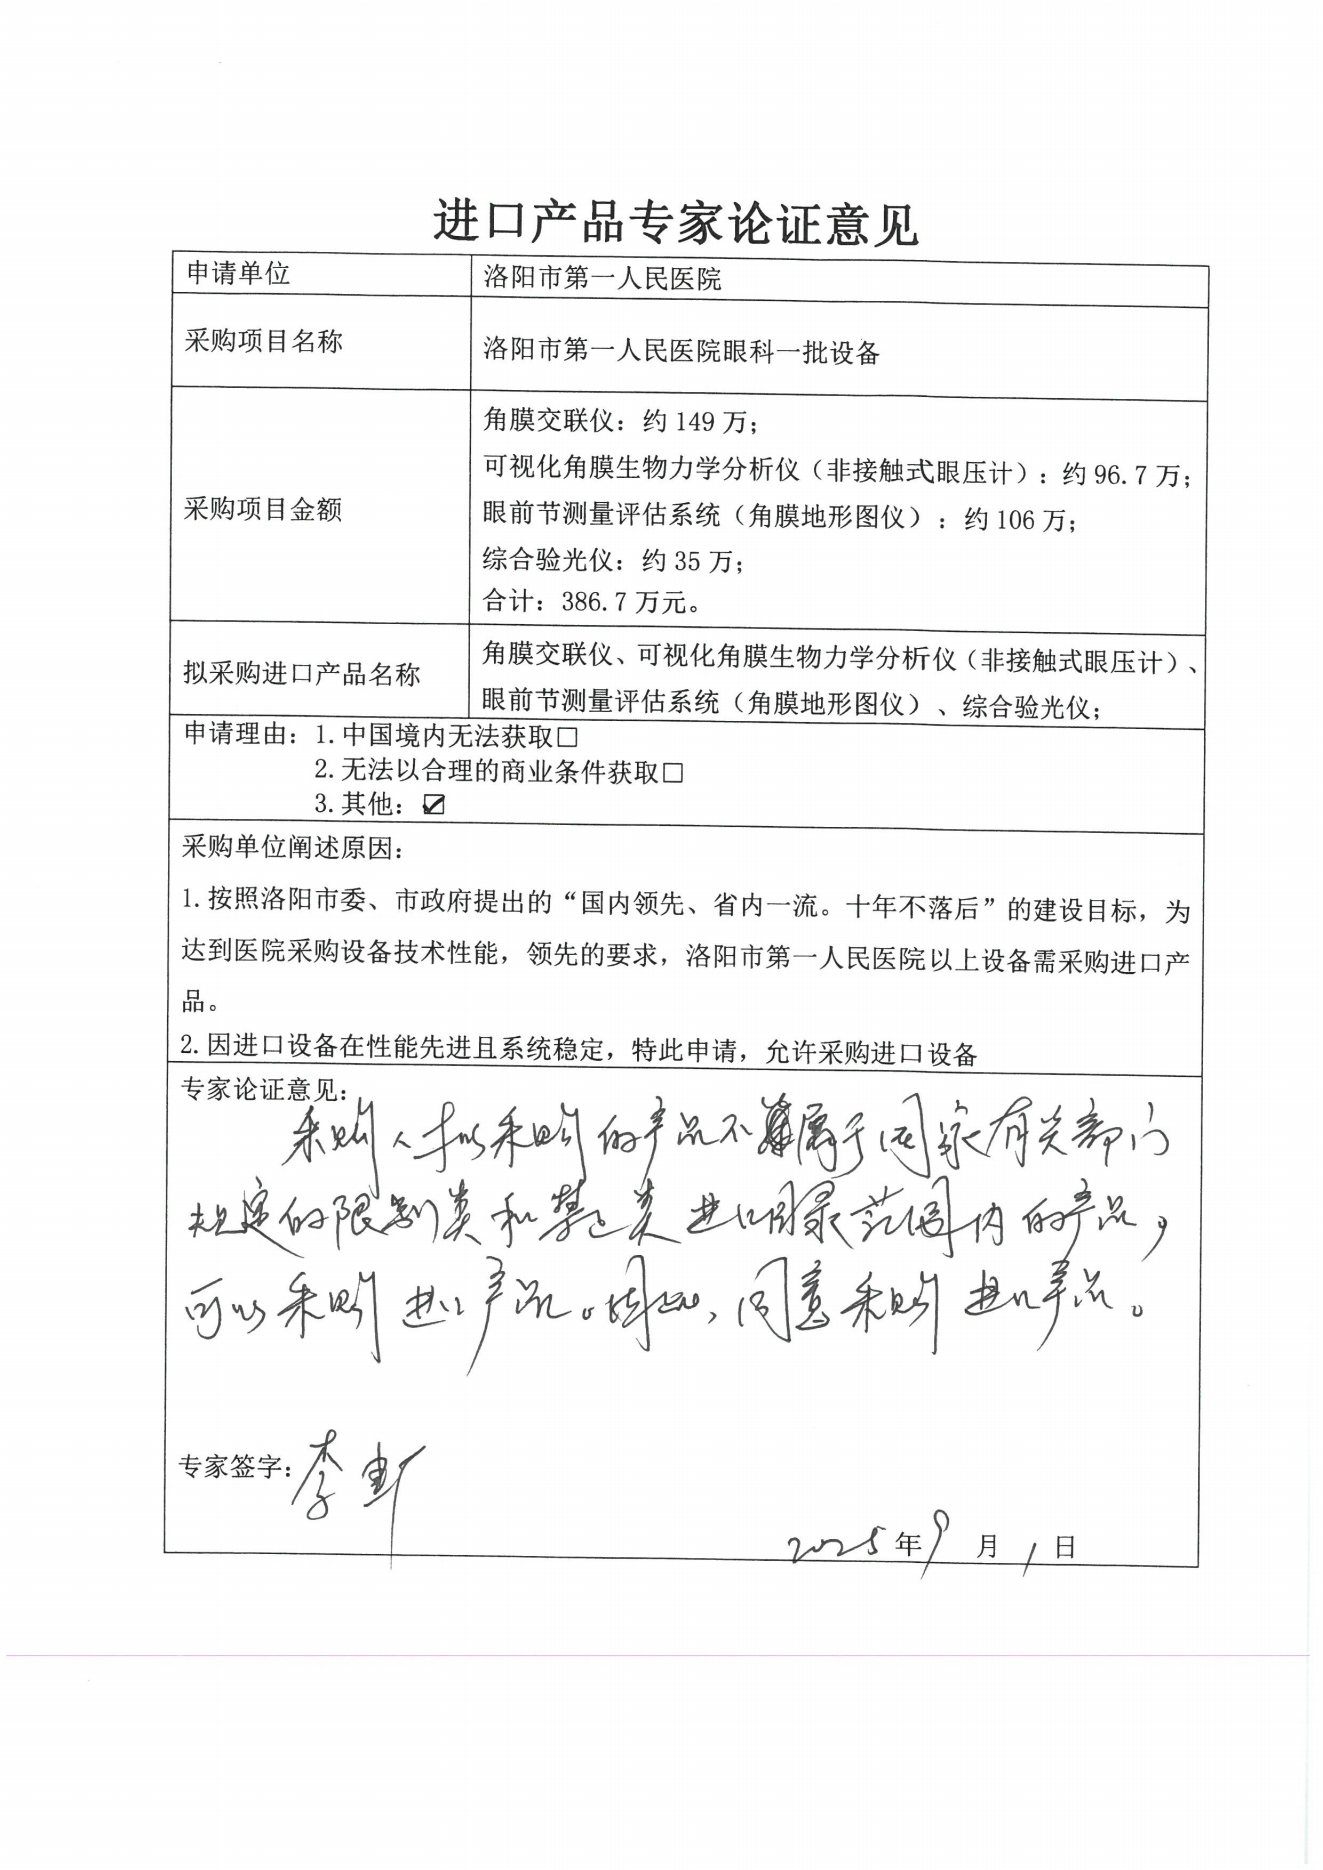 进口产品专家论证意见
申请单位
洛阳市第一人民医院
采购项目名称
洛阳市第一人民医院眼科一批设备
采购项目金额
角膜交联仪：约149万；
可视化角膜生物力学分析仪（非接触式眼压计）：约96.7万；
眼前节测量评估系统（角膜地形图仪）：约106万；
综合验光仪：约35万；
合计：386.7万元。
拟采购进口产品名称
角膜交联仪、可视化角膜生物力学分析仪（非接触式眼压计）、
眼前节测量评估系统（角膜地形图仪）、综合验光仪；
申请理由：1.中国境内无法获取□
2.无法以合理的商业条件获取□
3.其他：☑
采购单位阐述原因：
1.按照洛阳市委、市政府提出的“国内领先、省内一流。十年不落后”的建设目标，为
达到医院采购设备技术性能，领先的要求，洛阳市第一人民医院以上设备需采购进口产
品。
2.因进口设备在性能先进且系统稳定，特此申请，允许采购进口设备
专家论证意见：
采购人拟采购的产品不属于国家有关部门
规定的限制类和禁止类进口目录范围内的产品，
可以采购进口产品。因此，同意采购进口产品。
专家签字：李
2025年9月1日